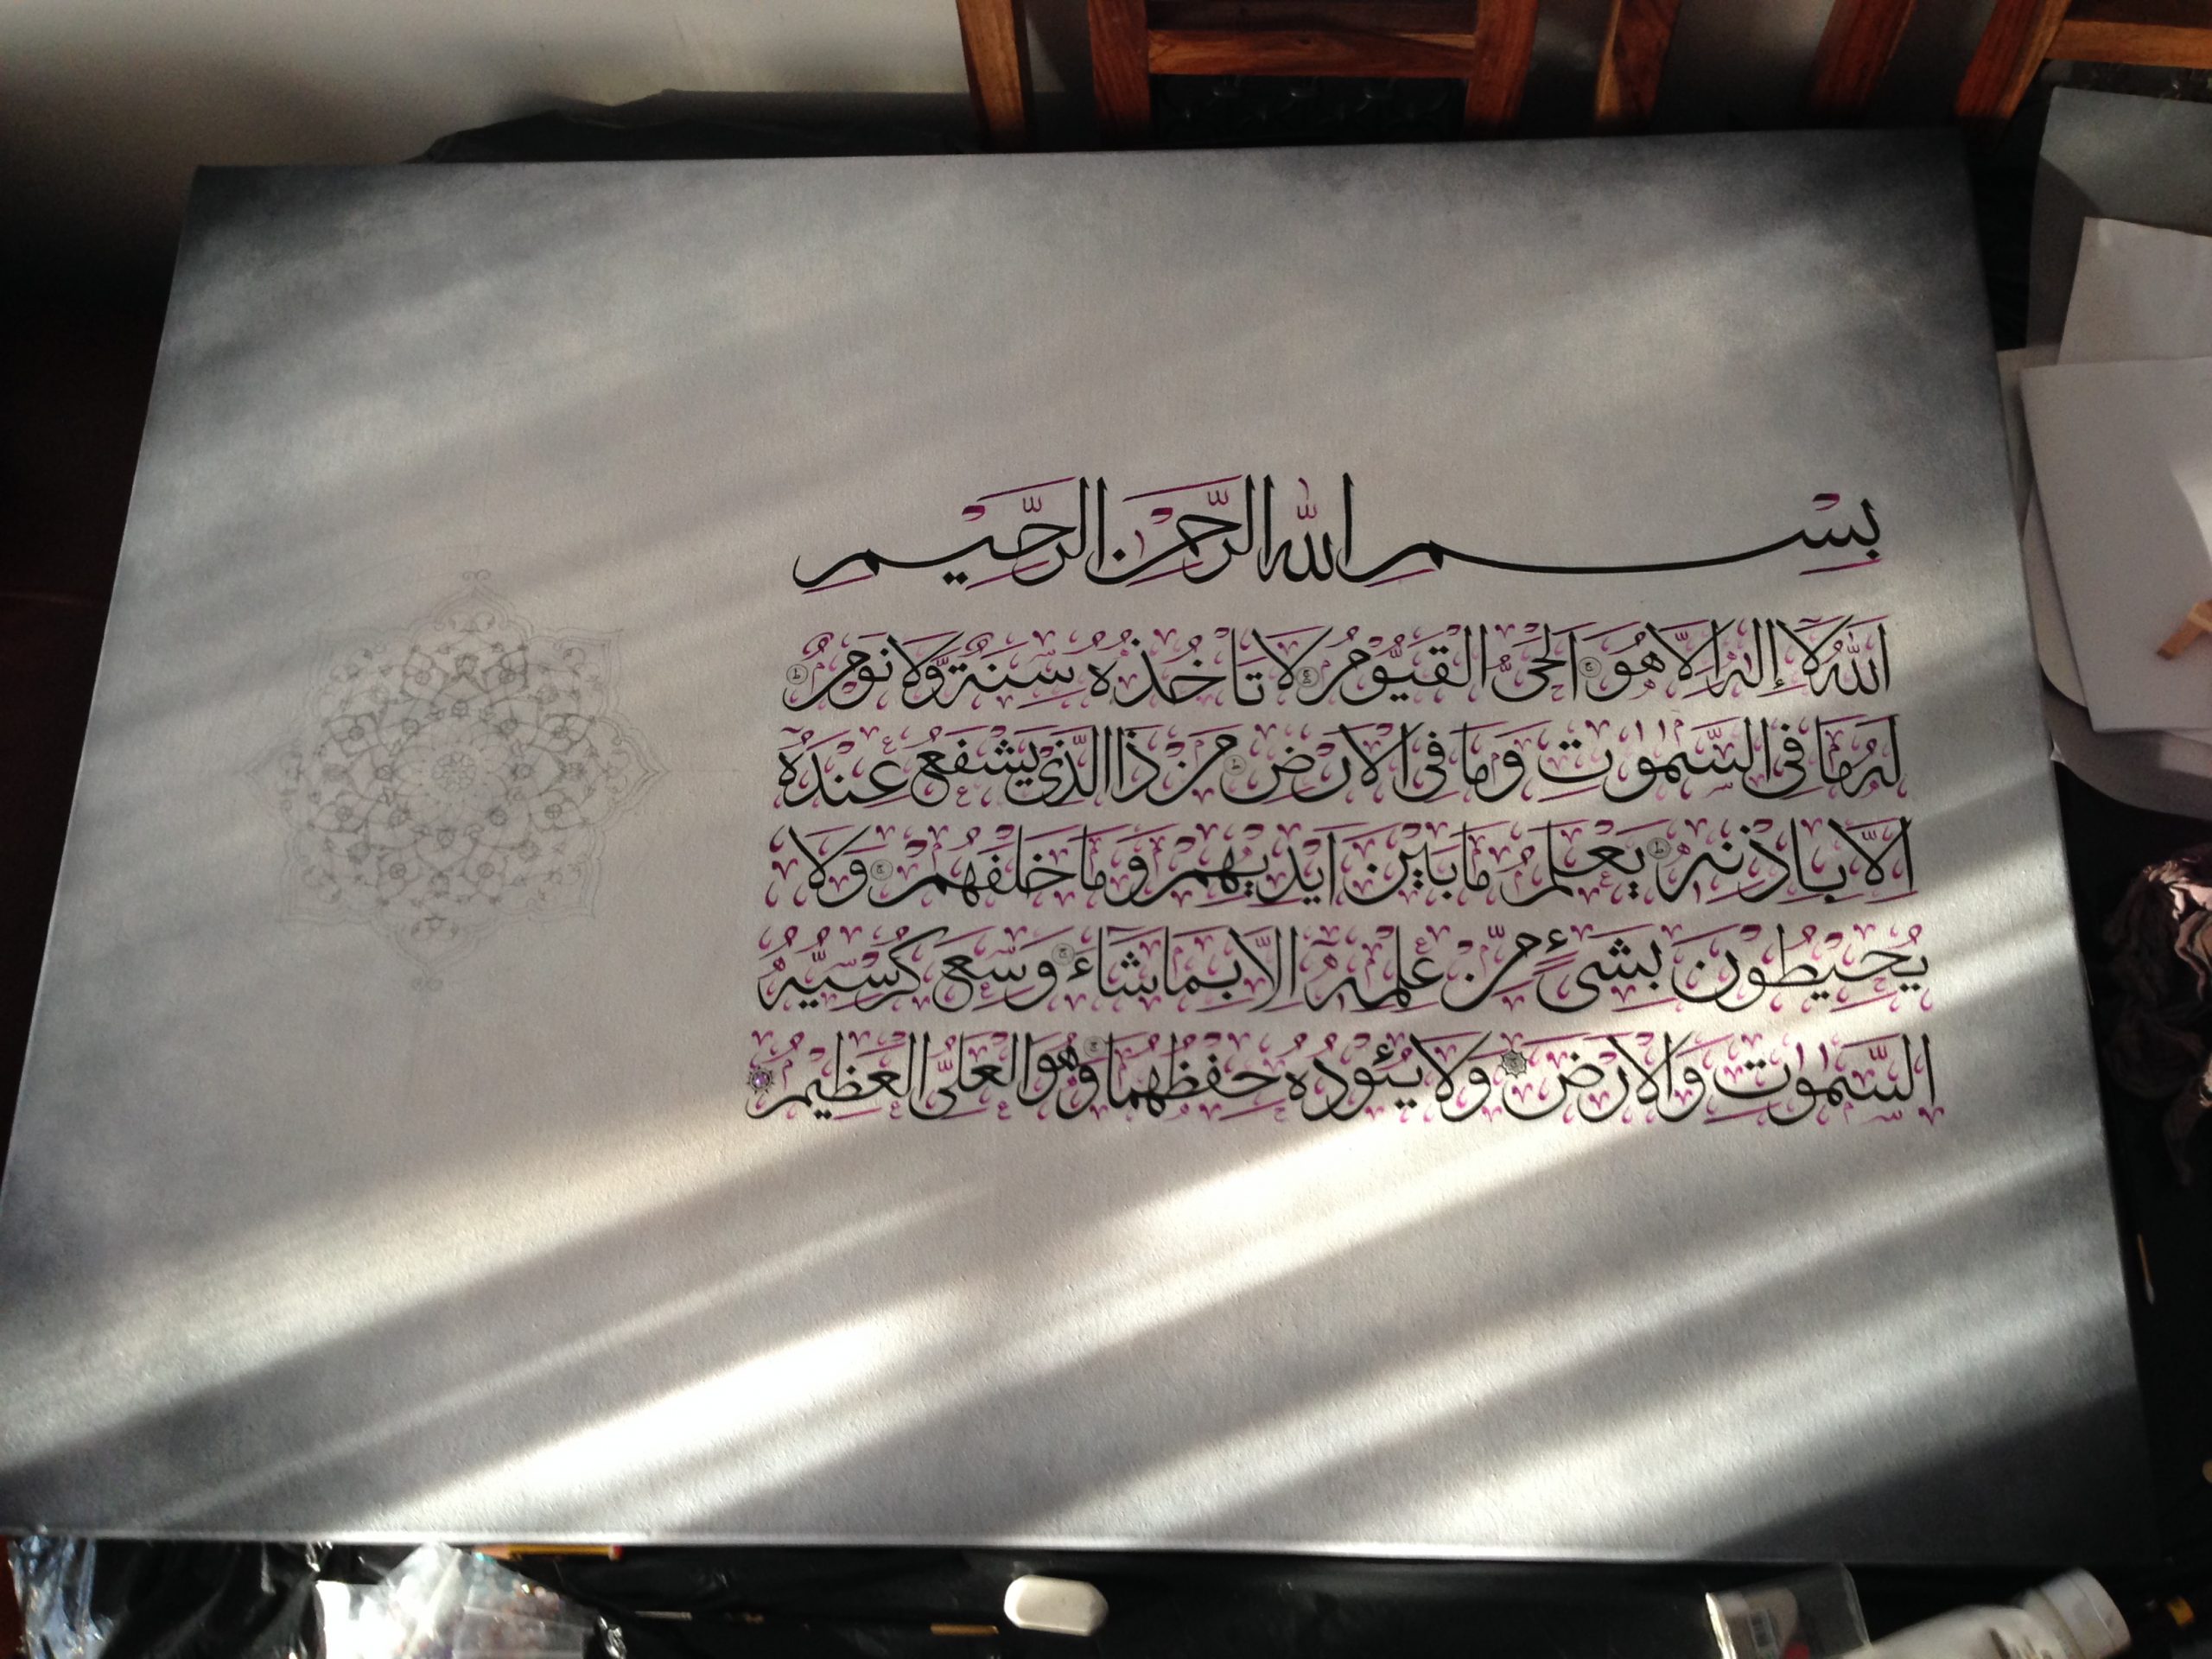 بِسْمِ اللهِ الرَّحْمٰنِ الرَّحِيْمِ
اَللهُ لَآ إِلٰهَ اِلَّا هُوَ ۚ اَلْحَىُّ الْقَيُّوْمُ ۚ لَا تَاْخُذُهٗ سِنَةٌ وَّلَا نَوْمٌ ؕ
لَهٗ مَا فِى السَّمٰوٰتِ وَمَا فِى الْاَرْضِ ؕ مَنْ ذَا الَّذِىْ يَشْفَعُ عِنْدَهٗٓ
اِلَّا بِاِذْنِهٖ ؕ يَعْلَمُ مَا بَيْنَ اَيْدِيْهِمْ وَمَا خَلْفَهُمْ ۚ وَلَا
يُحِيْطُوْنَ بِشَىْءٍ مِّنْ عِلْمِهٖٓ اِلَّا بِمَا شَآءَ ۚ وَسِعَ كُرْسِيُّهُ
السَّمٰوٰتِ وَالْاَرْضَ ۚ وَلَا يَئُوْدُهٗ حِفْظُهُمَا ۚ وَهُوَ الْعَلِىُّ الْعَظِيْمُ